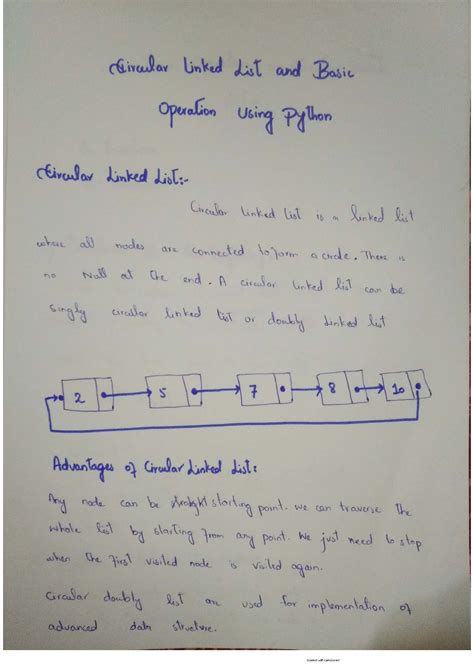 Circular Linked List and Basic
Operation Using Python
Circular Linked List:-
Circular Linked List is a linked list
where all nodes are connected to form a circle. There is
no Null at the end. A circular linked list can be
singly circular linked list or doubly Linked list
2 5 7 8 10
Advantages of Circular Linked List:
Any node can be starting point. we can traverse the
whole list by starting from any point. We just need to stop
when the first visited node is visited again.
Circular doubly list are used for implementation of
advanced data structure.